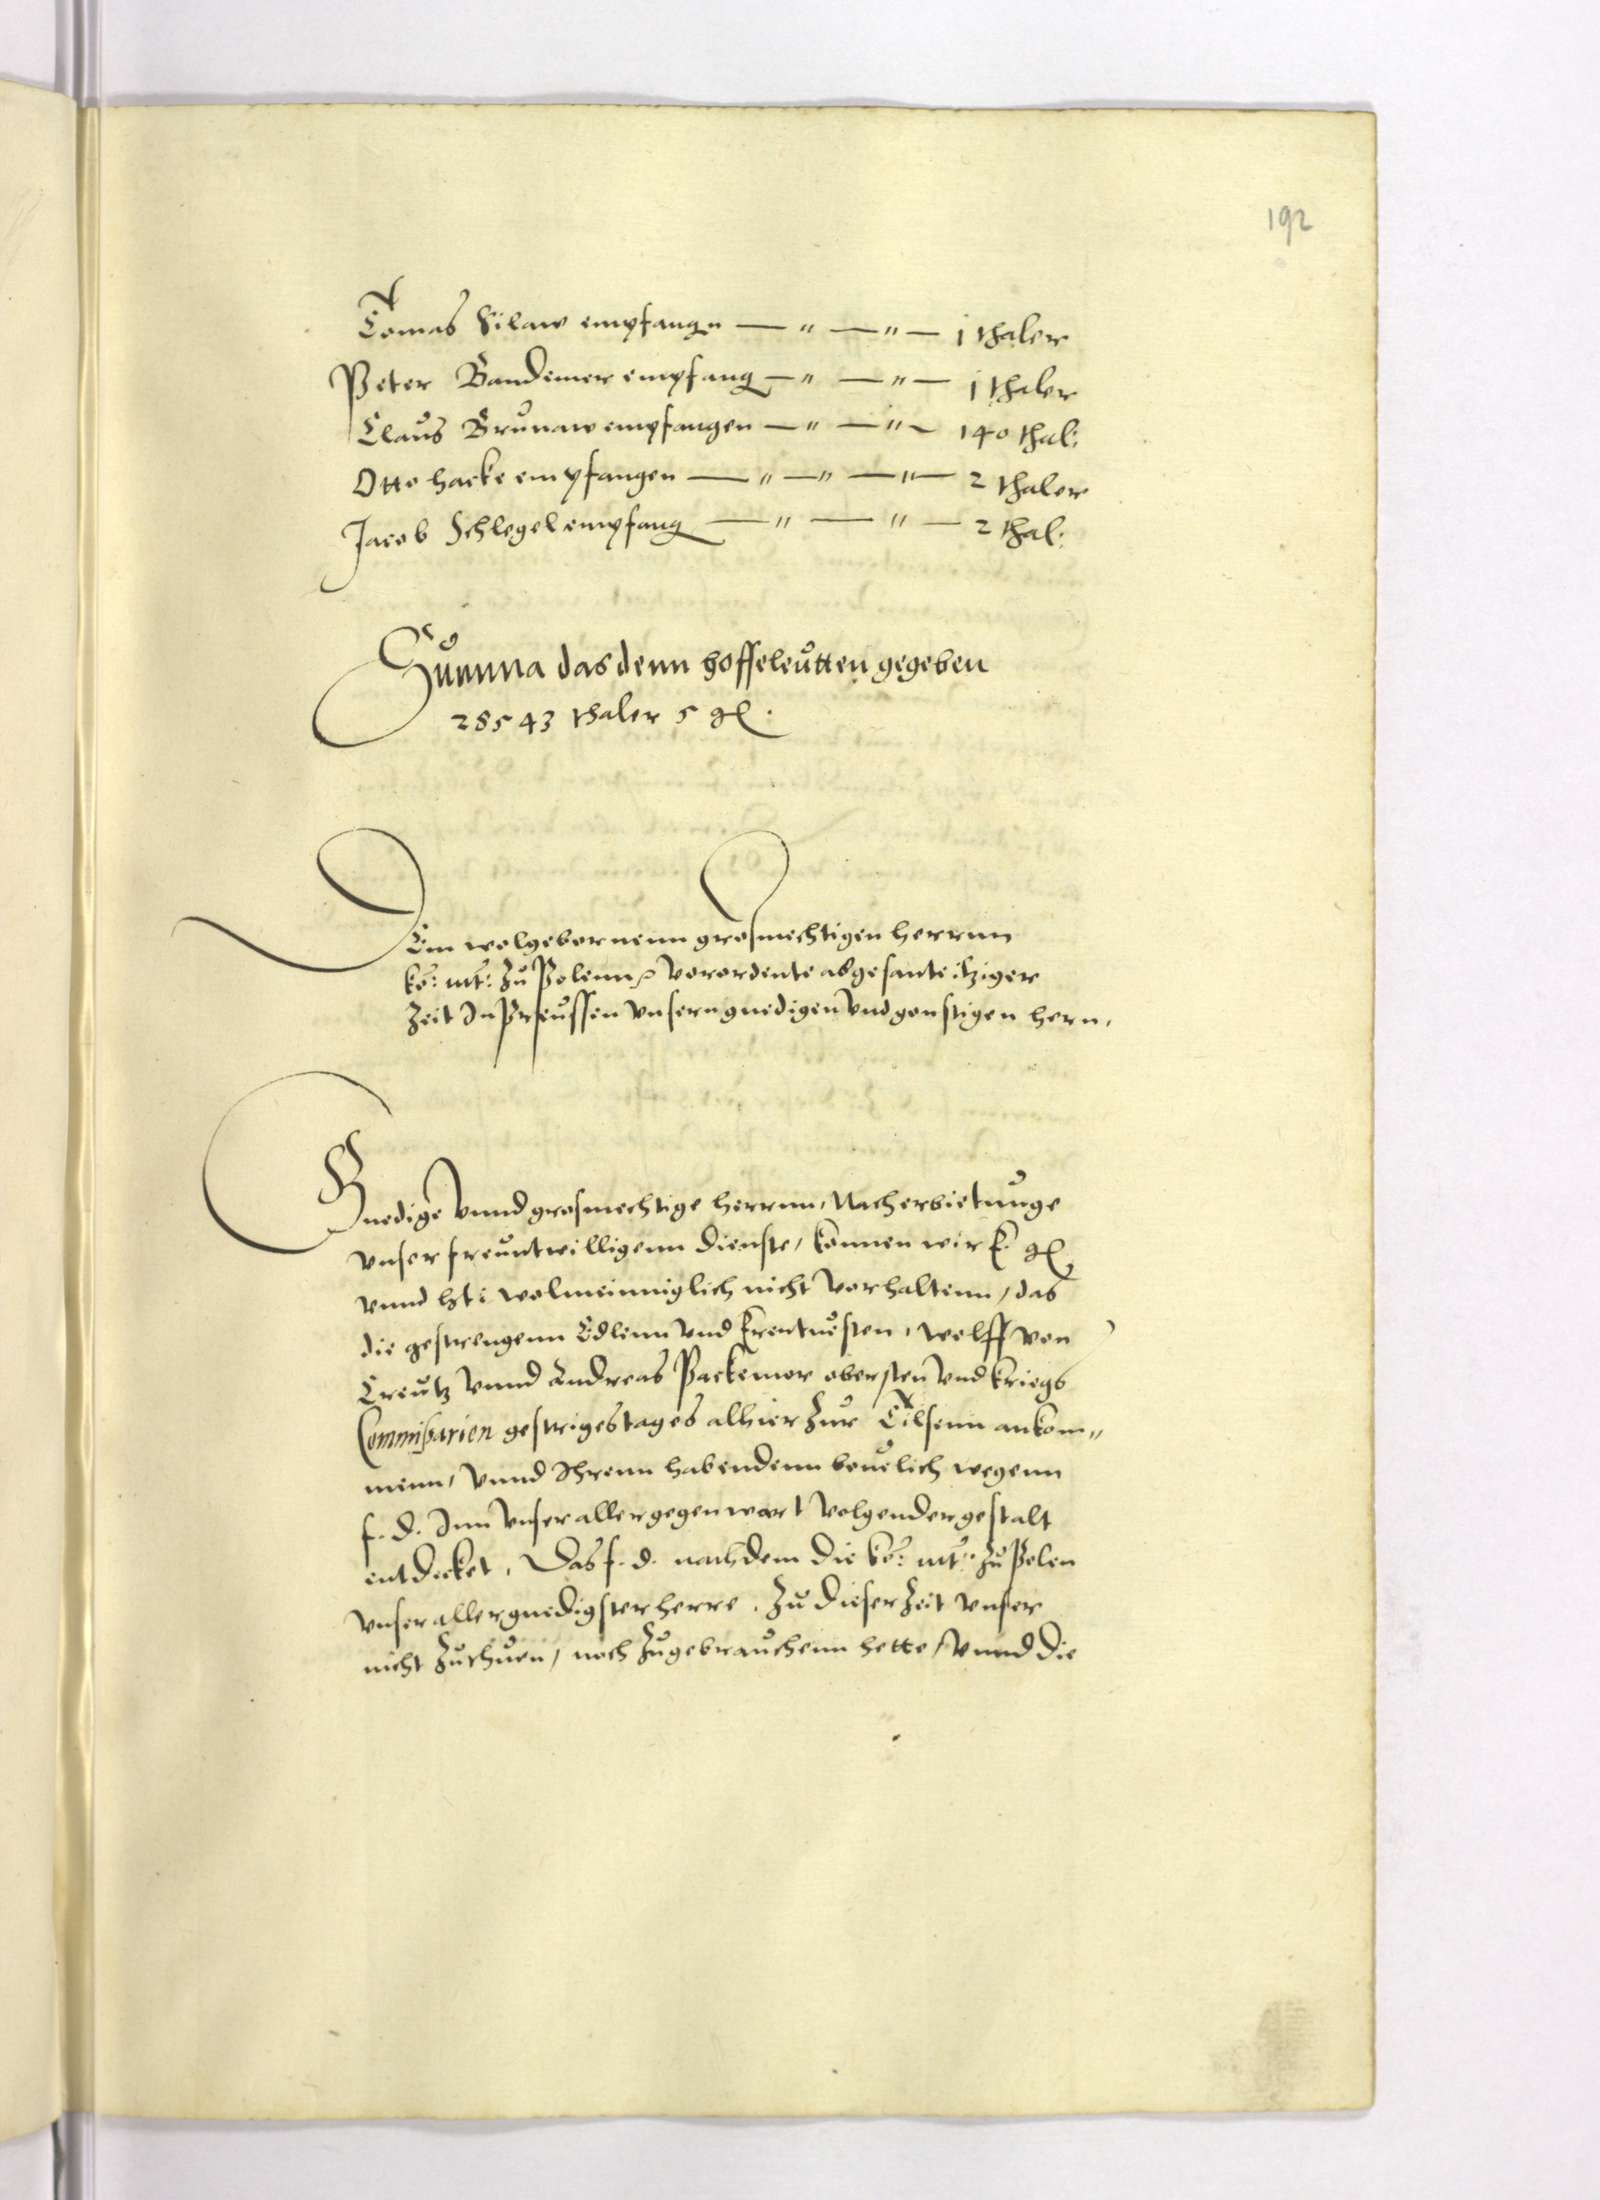 192
Tomas Silaw empfangn — " — " — 1 thaler
Peter Bandemer empfang — " — " — 1 thaler
Claus Brunaw empfangen — " — " — 140 thal:
Otto hacke empfangen — " — " — " — 2 thaler
Jacob Schlegel empfang — " — " — 2 thal:
Summa das denn hoffeleutten gegeben
28543 thaler 5 gl.
Den wolgebornenn grosmechtigen herrnn
ko: mt: zu Polenn verordente abgesante itziger
Zeit In Preussen unsern gnedigen und gonstigen hern,
Gnedige vnnd grosmechtige herrnn, Nach erbietunge
vnser freuntwilligenn dienste, konnen wir E. gl
vnnd hti wolmeinniglich nicht vorhaltenn, das
die gestrengenn Edlenn vnd Erentuesten, Wolff von
Creutz vnnd Andreas Packemor obersten vnd kriegs
Commissarien gestriges tages alhier zur Tilsenn ankom"
menn, vnnd Ihrenn habendenn beuelich wegenn
f. d. Inn vnser aller gegenwart volgender gestalt
entdecket, Das f. d. nachdem die ko: mt: zu Polen
vnser allergnedigster herre. zu dieser Zeit vnser
nicht zuthuen, noch zugebrauchenn hette, vnnd die